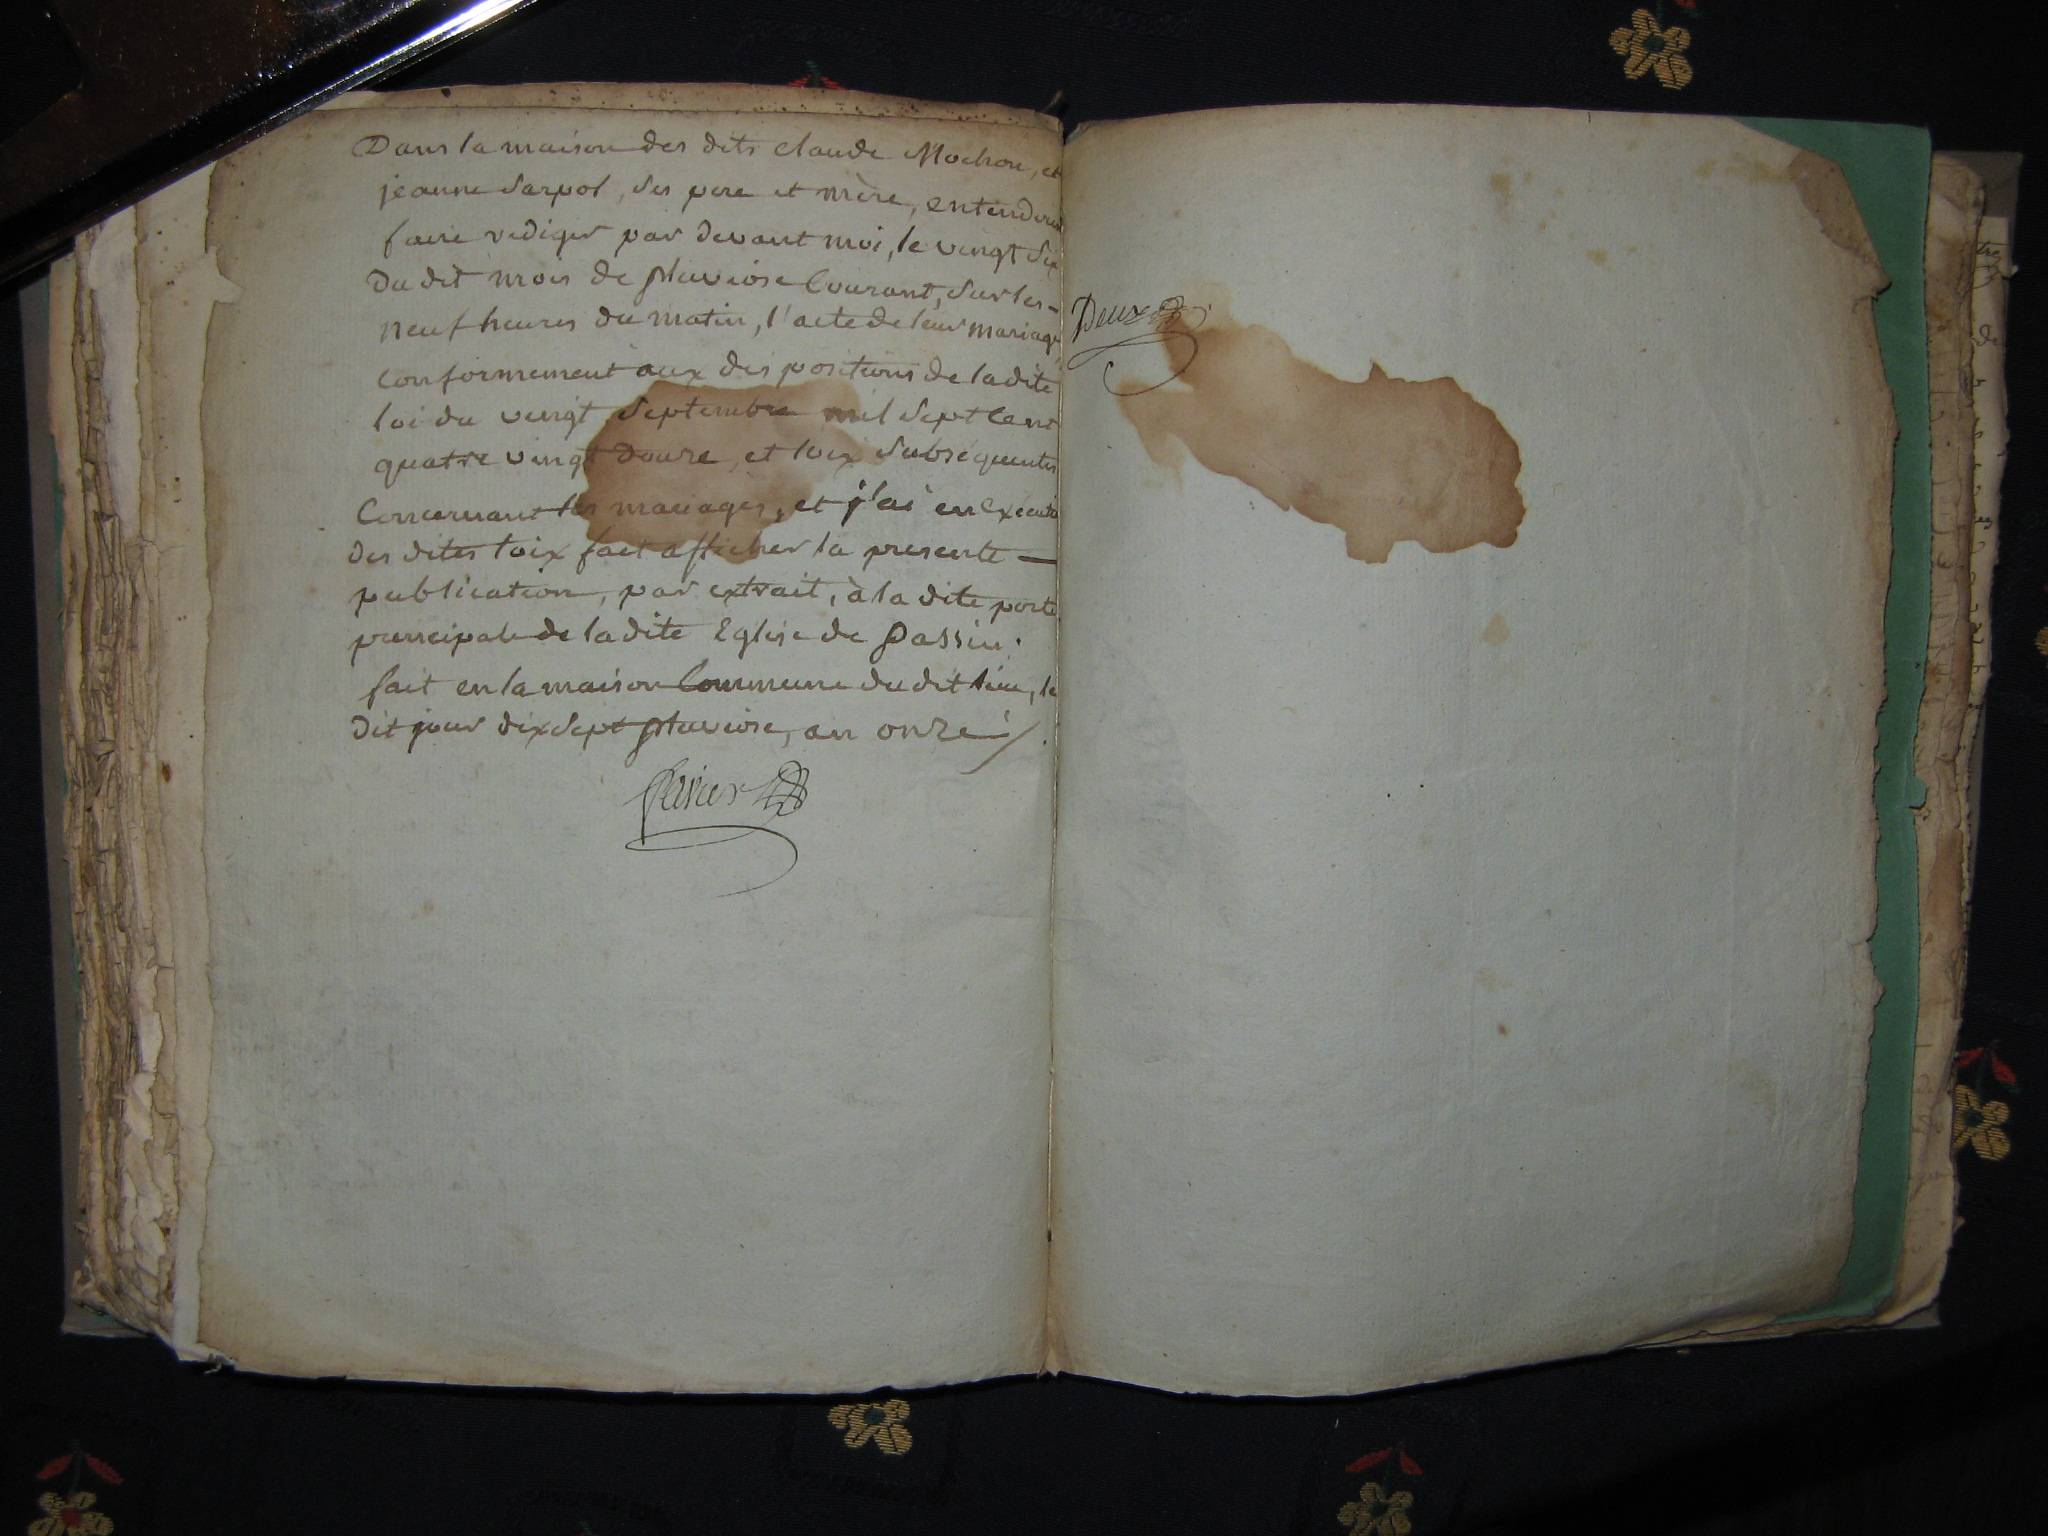 Dans la maison des dits claude Mochon, et
jeanne Sarpol, ses pere et mère, entendre
faire rediger par devant moi, le vingt six
du dit mois de pluviose Courant, sur les -
neuf heures du matin, l'acte de leur mariage
conformement aux dispositions de la dite
loi du vingt Septembre mil sept Cent
quatre vingt douze, et loix subséquentes
Concernant les mariages, et j'ai en Executi
des dites loix fait afficher la presente —
publication, par extrait, à la dite porte
principale de la dite Eglise de Passin.
fait en la maison Commune du dit lieu, le
dit jour dix sept pluviose, an onze /.
Deux